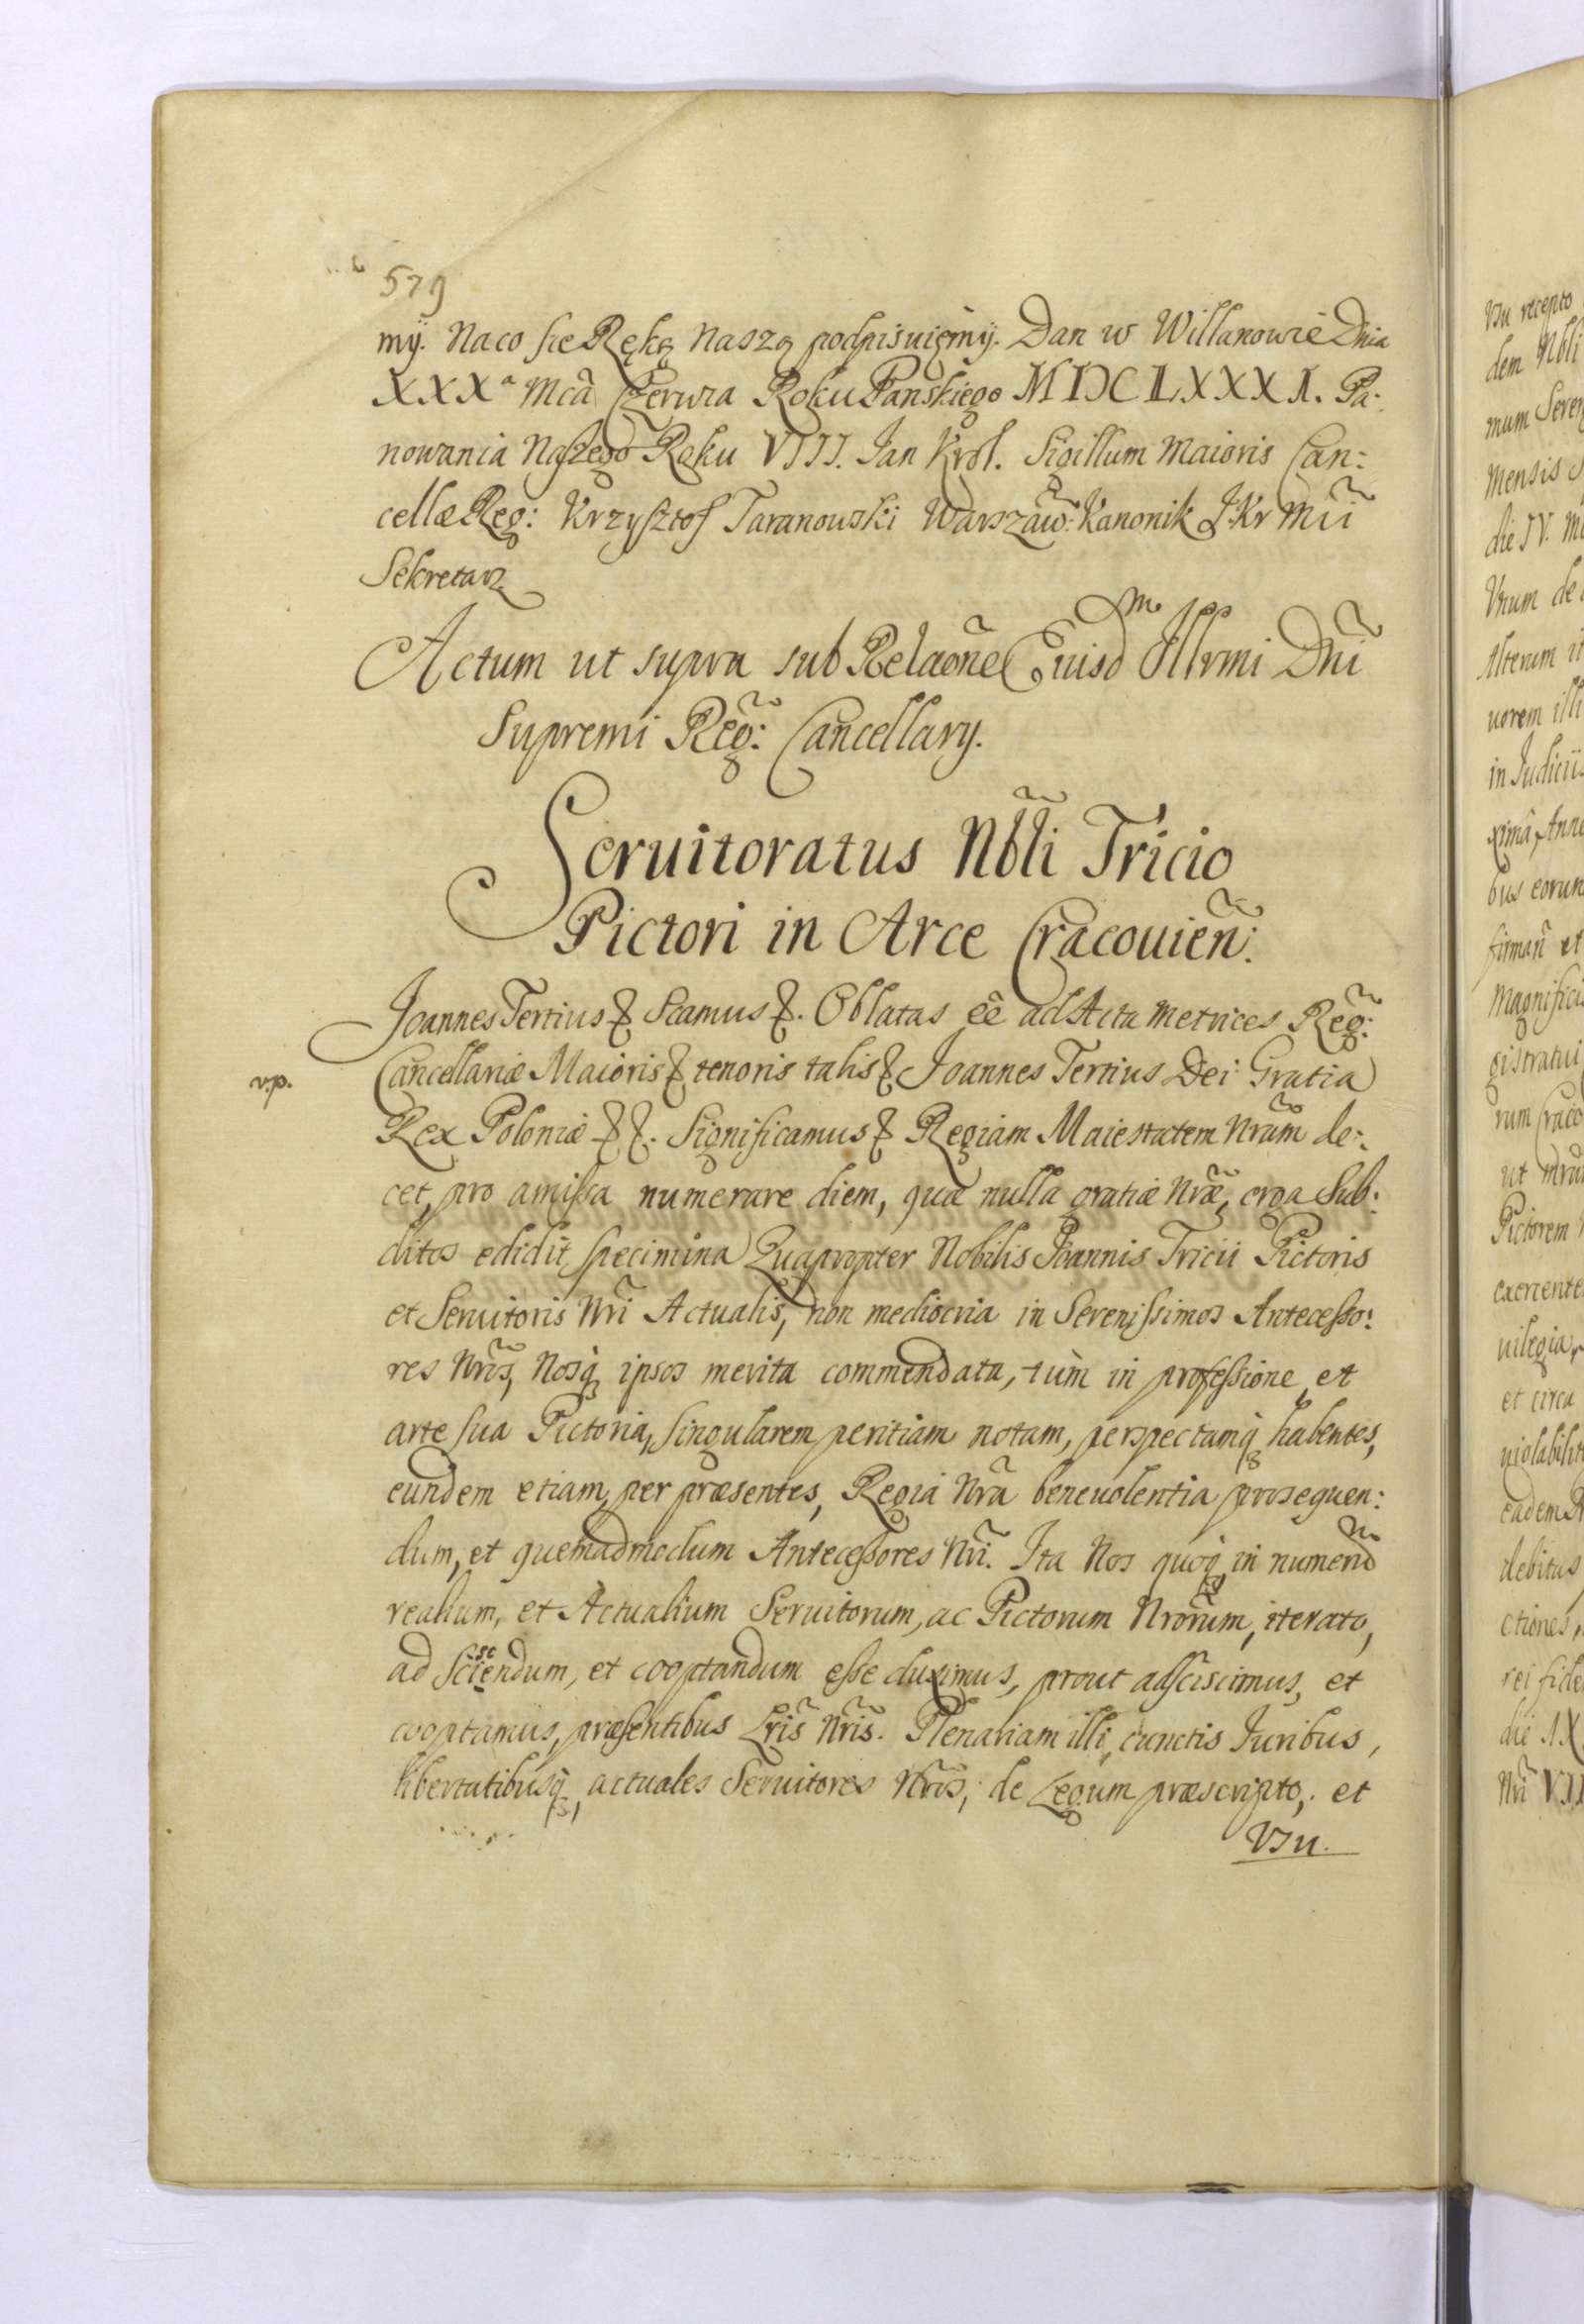 579
my. Naco sie Ręką Naszą podpisuięmy. Dan w Willanowie Dnia
XXXª Mcã Czerwca Roku Panskiego MDCLXXXI. Pa:
nowania Naszego Roku VIII. Jan Krol. Sigillum Maioris Can:
cellæ Reg: Krzysztof Taranowski Warszaw: Kanonik J Kr Mci
Sekretarz
Actum ut supra sub Relaõne Eiusdm Illrmi Dñi
Supremi Reg: Cancellary.
Seruitoratus Nbli Tricio
Pictori in Arce Cracouien:
Joannes Tertius & Scamus &. Oblatas eê ad Acta Metrices Reg:
v.p.
Cancellariæ Maioris & tenoris talis & Joannes Tertius Dei Gratia
Rex Poloniæ &&. Significamus & Regiam Maiestatem Nrãm de:
cet, pro amissa numerare diem, quæ nulla gratiæ Nræ, erga Sub:
ditos edidit specimina Quapropter Nobilis Joannis Tricii Pictoris
et Seruitoris Nri Actualis, non mediocria in Serenissimos Antecesso:
res Nros, Nosq ipsos merita commendata, tùm in professione, et
arte sua Pictoria, singularem peritiam notam, perspectamq habentes,
eundem etiam per præsentes, Regiâ Nrã beneuolentia prosequen:
dum, et quemadmodum Antecessores Nri. Ita Nos quoq, in numerũ
realium, et Actualium Seruitorum, ac Pictorum Nrorum, iterato,
ad Sciscendum, et cooptandum esse duximus, prout adsciscimus, et
cooptamus, præsentibus Lris Nris. Plenariam illi, cunctis Juribus,
libertatibusq, actuales Seruitores Nros, de Legum præscripto, et
Vsu.